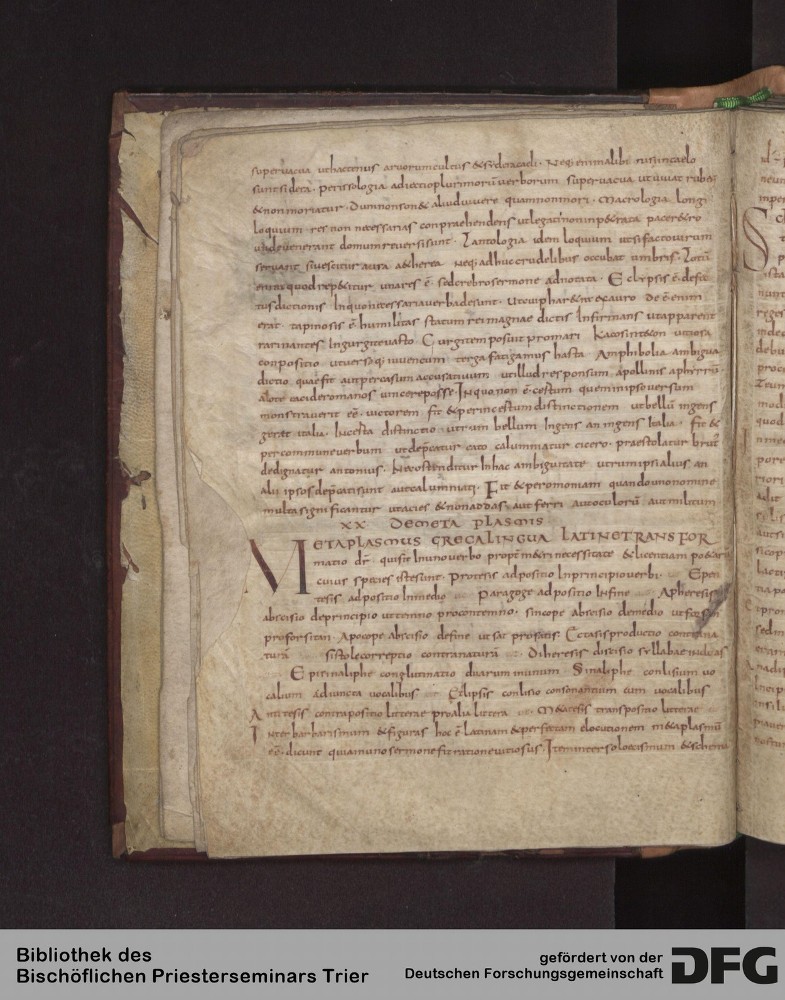 supervacua uthactenus arvorum cultus &sydera caeli. Neq; enim alibi nisi in caelo
sunt sidera. perissologia adiectio plurimorū verborum supervacua ut vivat ruben
&non moriatur. Dum non son& aliud vivere quam non mori. Macrologia longi
loquium. res non necessarias conpraehendens ut legati non inp&rata pace r&ro
unde venerant domum reversi sunt. Tautologia idem loquium ut si fata virum
servant si vescitur aura a&herea neq; adhuc crudelibus occubat umbris. Totū
enim quod rep&itur una res ē. sed crebro sermone adnotata. Eclypsis ē. defec
tus dictionis In quo necessaria verba desunt.
erat. tapinosis ē humilitas statum rei magnae dictis Infirmans ut apparent
rari nantes In gurgite vasto. Cur gitem posuit pro mari Kacosinteton vitiosa
conpositio ut versaq; iuvencum terga fatigamus hasta. Amphibolia ambigua
dictio quae fit aut per casum accusativum ut illud responsum apollinis ad pirrū
aio te eacide romanos vincere posse. In quo non ē. certum quem in ipso versum
monstraverit eē. victorem fit &per incertum distinctionem ut bellū ingens
geret italia. Incerta distinctio utrum bellum Ingens an ingens Italia. fit &
per commune verbum ut dep̄catur cato calumniatur cicero. praestolatur brut'
dedignatur antonius. Nec ostenditur In hac ambiguitate utrum ipsi alius an
alii ipsos dep̄cati sunt aut calumniati. Fit &per omoniam quando uno nomine
multa significantur ut acies &non addas aut ferri aut oculorū aut militum
XX DE META PLASMIS
METAPLASMUS GRECA LINGUA LATINE TRANSFOR
matio dr̄. quifit In uno verbo propt m&ri necessitate &licentiam po&arū
cuius species iste sunt. Protesis adpositio In principio verbi. Epen
tesis adpositio In medio Paragoge adpositio In fine Apheresis
abscisio de principio ut temno pro contemno. sincope abscisio de medio
pro forsitan. Apocope abscisio de fine ut sat pro satis Ectasis productio contra na
turā sistole correptio contra naturā Diheresis discisio syllabae in duas
Episinaliphe conglutinatio duarum in unum Sinaliphe conlisium vo
calium adiuncta vocalibus Eclipsis conlisio consonantium cum vocalibus
Antitesis contrapositio litterae pro alia littera M&atesis transpositio litterae
Inter barbarismum &figuras hoc ē latinam &perfectam elocutionem m&aplasmū
eē. dicunt quia in uno sermone fit ratione vitiosus. Item inter soloecismum &schema
Bibliothek des
Bischöflichen Priesterseminars Trier
gefördert von der
Deutschen Forschungsgemeinschaft
DFG